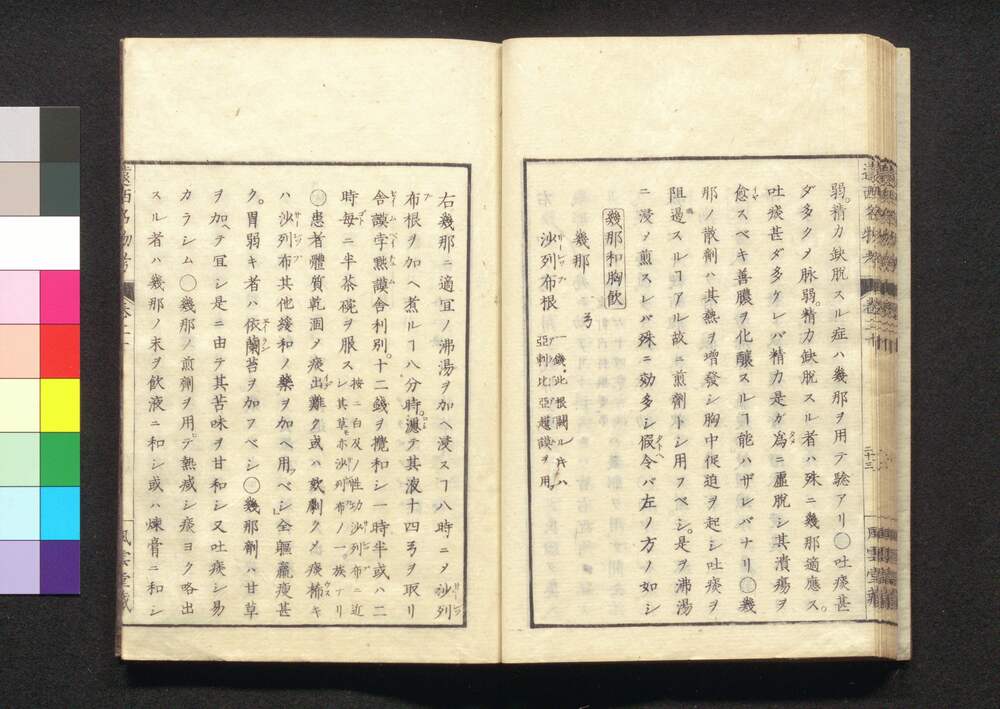 弱。精力缺脫スル症ハ幾那ヲ用テ驗アリ◯吐痰甚
ダ多クヲ脉弱。精力缺脫スル者ハ殊ニ幾那適應ス。
吐痰甚ダ多ケレバ精力是ガ爲ニ虛脫シ其潰瘍ヲ
愈スベキ善膿ヲ化釀スルヿ能ハザレバナリ◯幾
那ノ散劑ハ其熱ヲ增發シ胸中促迫ヲ起シ吐痰ヲ
阻遏スルヿアル故ニ煎劑トシ用フベシ。是ヲ沸湯
ニ浸〆煎スレバ殊ニ効多シ假令バ左ノ方ノ如シ
幾那和胸飮
幾那 ゟ
沙列布根 一錢。此根闕ル片ハ
亞剌比亞護謨ヲ用
遠西名物考 卷二十 二十三 風雲堂藏
右幾那ニ適宜ノ沸湯ヲ加ヘ浸スヿ八時ニ〆沙列
布根ヲ加ヘ煮ルヿ八分時。漉テ其液十四ゟヲ取リ
舍謨孛黙謨舍利別。十二錢ヲ攪和シ一時半或ハ二
時每ニ半茶碗ヲ服ス 按ニ白及ノ性功沙列布ニ近
シ其草亦沙列布ノ一族ナリ
◯患者體質乾涸〆痰出難ク或ハ欬劇ク〆痰稀キ
ハ沙列布其他緩和ノ藥ヲ加ヘ用ベシ全軀羸瘦甚
ク。胃弱キ者ハ依蘭苔ヲ加フベシ◯幾那劑ハ甘草
ヲ加ヘテ宜シ是ニ由テ其苦味ヲ甘和シ又吐痰シ易
カラシム◯幾那ノ煎劑ヲ用テ熱減シ痰ヨク咯出
スル者ハ幾那ノ末ヲ飮液ニ和シ或ハ煉膏ニ和シ